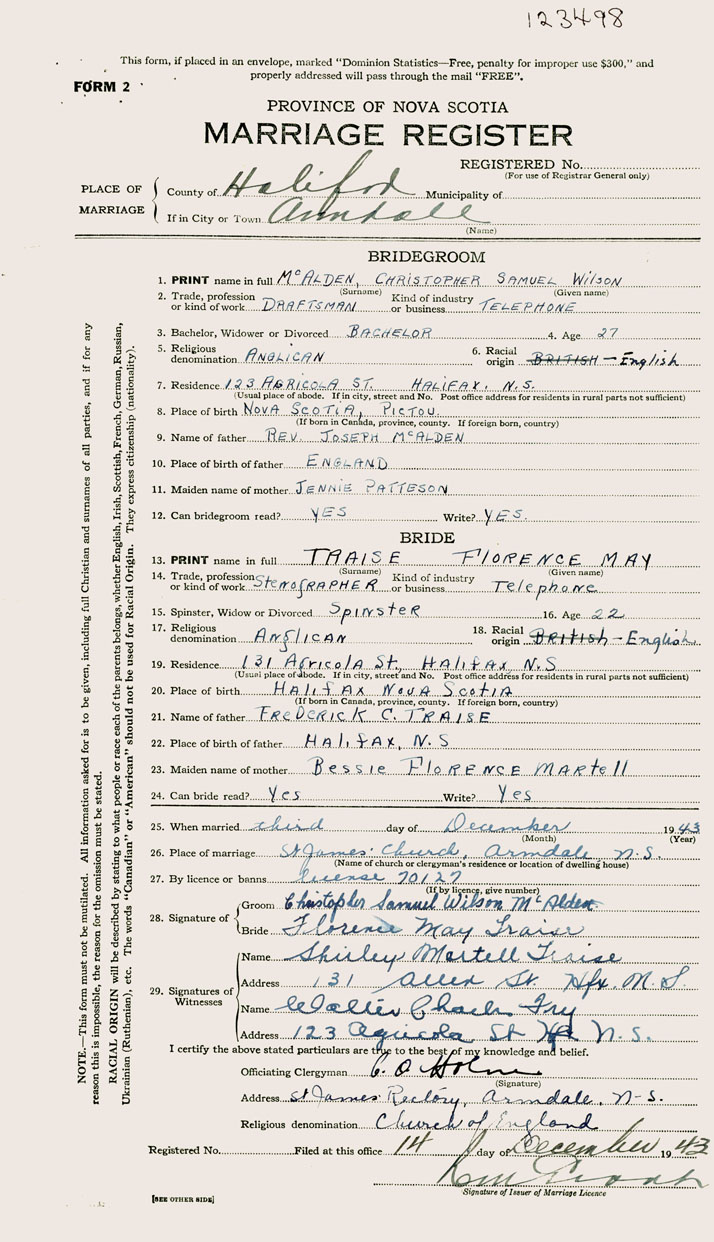 123498
This form, if placed in an envelope, marked "Dominion Statistics—Free, penalty for improper use $300," and
properly addressed will pass through the mail "FREE".
FORM 2
PROVINCE OF NOVA SCOTIA
MARRIAGE REGISTER
REGISTERED No.
(For use of Registrar General only)
PLACE OF MARRIAGE
County of Halifax Municipality of
If in City or Town Armdale
(Name)
BRIDEGROOM
1. PRINT name in full McALDEN, CHRISTOPHER SAMUEL WILSON
(Surname) (Given name)
2. Trade, profession or kind of work DRAFTSMAN Kind of industry or business TELEPHONE
3. Bachelor, Widower or Divorced BACHELOR 4. Age 27
5. Religious denomination ANGLICAN 6. Racial origin BRITISH - English
7. Residence 123 AGRICOLA ST. HALIFAX, N.S.
(Usual place of abode. If in city, street and No. Post office address for residents in rural parts not sufficient)
8. Place of birth NOVA SCOTIA, PICTOU.
(If born in Canada, province, county. If foreign born, country)
9. Name of father REV. JOSEPH McALDEN
10. Place of birth of father ENGLAND
11. Maiden name of mother JENNIE PATTESON
12. Can bridegroom read? YES Write? YES.
BRIDE
13. PRINT name in full TRAISE FLORENCE MAY
(Surname) (Given name)
14. Trade, profession or kind of work StenogRAPHER Kind of industry or business Telephone
15. Spinster, Widow or Divorced SPINSTER 16. Age 22
17. Religious denomination ANglICAN 18. Racial origin BRITISH - English
19. Residence 131 Agricola St., HALIFAX N.S
(Usual place of abode. If in city, street and No. Post office address for residents in rural parts not sufficient)
20. Place of birth HALIFAX NOVA SCOTIA
(If born in Canada, province, county. If foreign born, country)
21. Name of father FREDERICK C. TRAISE
22. Place of birth of father HALIFAX, N.S
23. Maiden name of mother Bessie FLORENCE MARTell
24. Can bride read? Yes Write? Yes
25. When married third day of December 1943
(Month) (Year)
26. Place of marriage St James' Church, Armdale, N.S.
(Name of church or clergyman's residence or location of dwelling house)
27. By licence or banns license 70127
(If by licence, give number)
28. Signature of
Groom Christopher Samuel Wilson McAlden
Bride Florence May Traise
29. Signatures of Witnesses
Name Shirley Martell Traise
Address 131 Allen St. Hfx. N.S
Name Walter Charles Fry
Address 123 Agricola St Hfx N.S.
I certify the above stated particulars are true to the best of my knowledge and belief.
Officiating Clergyman C. O
(Signature)
Address St James' Rectory, Armdale, N-S.
Religious denomination Church of England
Registered No. Filed at this office 14 day of December 1943
Signature of Issuer of Marriage Licence
[SEE OTHER SIDE]
NOTE.—This form must not be mutilated. All information asked for is to be given, including full Christian and surnames of all parties, and if for any
reason this is impossible, the reason for the omission must be stated.
RACIAL ORIGIN will be described by stating to what people or race each of the parents belongs, whether English, Irish, Scottish, French, German, Russian,
Ukrainian (Ruthenian), etc. The words "Canadian" or "American" should not be used for Racial Origin. They express citizenship (nationality).